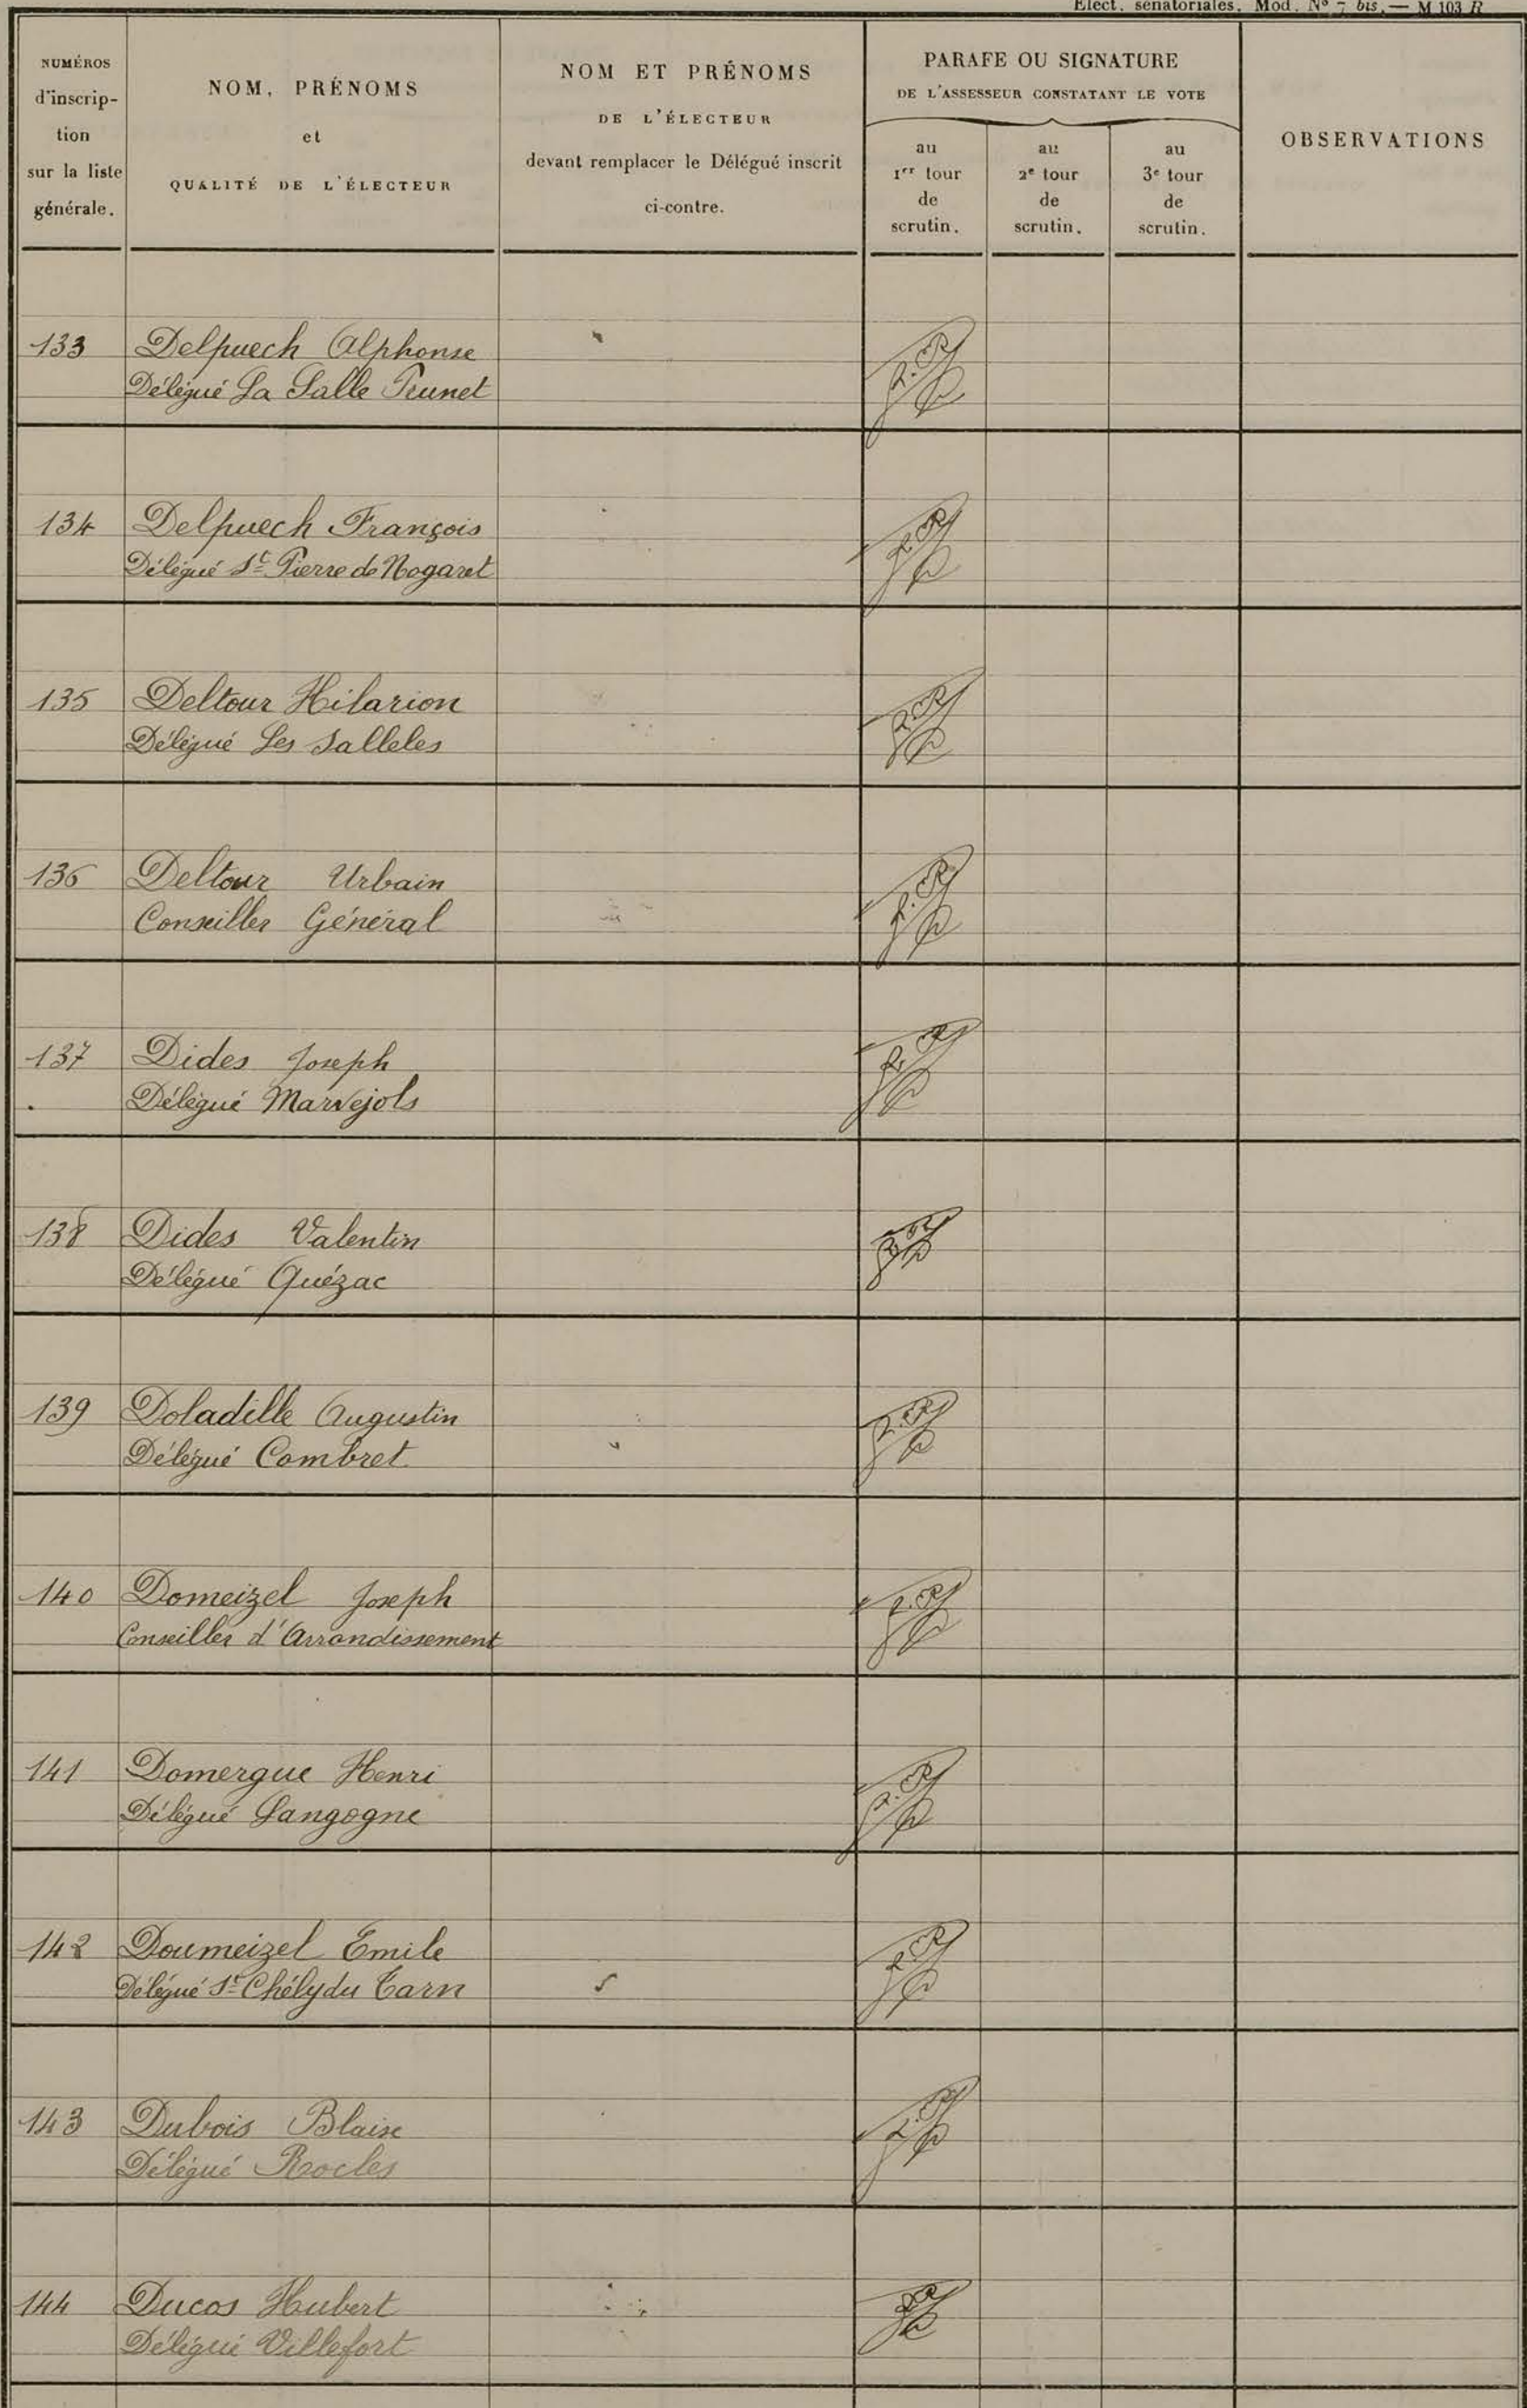 Elect. sénatoriales. Mod. Nº 7 bis. — M 103 R
NUMÉROS
d'inscrip-
tion
sur la liste
générale.
NOM, PRÉNOMS
et
QUALITÉ DE L'ÉLECTEUR
NOM ET PRÉNOMS
DE L'ÉLECTEUR
devant remplacer le Délégué inscrit
ci-contre.
PARAFE OU SIGNATURE
DE L'ASSESSEUR CONSTATANT LE VOTE
au
1er tour
de
scrutin.
au
2e tour
de
scrutin.
au
3e tour
de
scrutin.
OBSERVATIONS
133 Delpuech Alphonse
Délégué La Salle Prunet
134 Delpuech François
Délégué St Pierre de Nogaret
135 Deltour Hilarion
Délégué Les Salleles
136 Deltour Urbain
Conseiller Général
137 Dides Joseph
Délégué Marvejols
138 Dides Valentin
Délégué Quézac
139 Doladille Augustin
Délégué Combret
140 Domeizel Joseph
Conseiller d'Arrondissement
141 Domergue Henri
Délégué Langogne
142 Doumeizel Emile
Délégué St Chély du Tarn
143 Dubois Blaise
Délégué Rocles
144 Ducos Hubert
Délégué Villefort